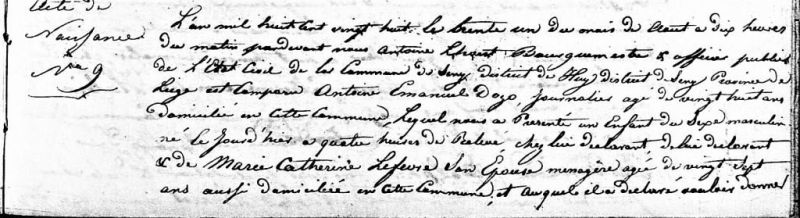 Acte de
Naissance
N° 9
L'an mil huit cent vingt huit le trente un du mois de aout a dix heures
du matin pardevant nous Antoine Bourquemestre & officier public
de L'Etat Civil de la Commune de Seny district de Huy district de Seny Province de
Liege est comparu Antoine Emanuel Dogo Journalier agé de vingt huit ans
domicilié en cette Commune, lequel nous a Présenté un Enfant du Sexe masculin
né le jourd'hier a quatre heures de Relevé chez lui declarant de lui declarant
& de Marie Catherine Lefevre Son Epouse menagère agée de vingt Sept
ans aussi domiciliée en cette Commune, et auquel il a declaré vouloir donner